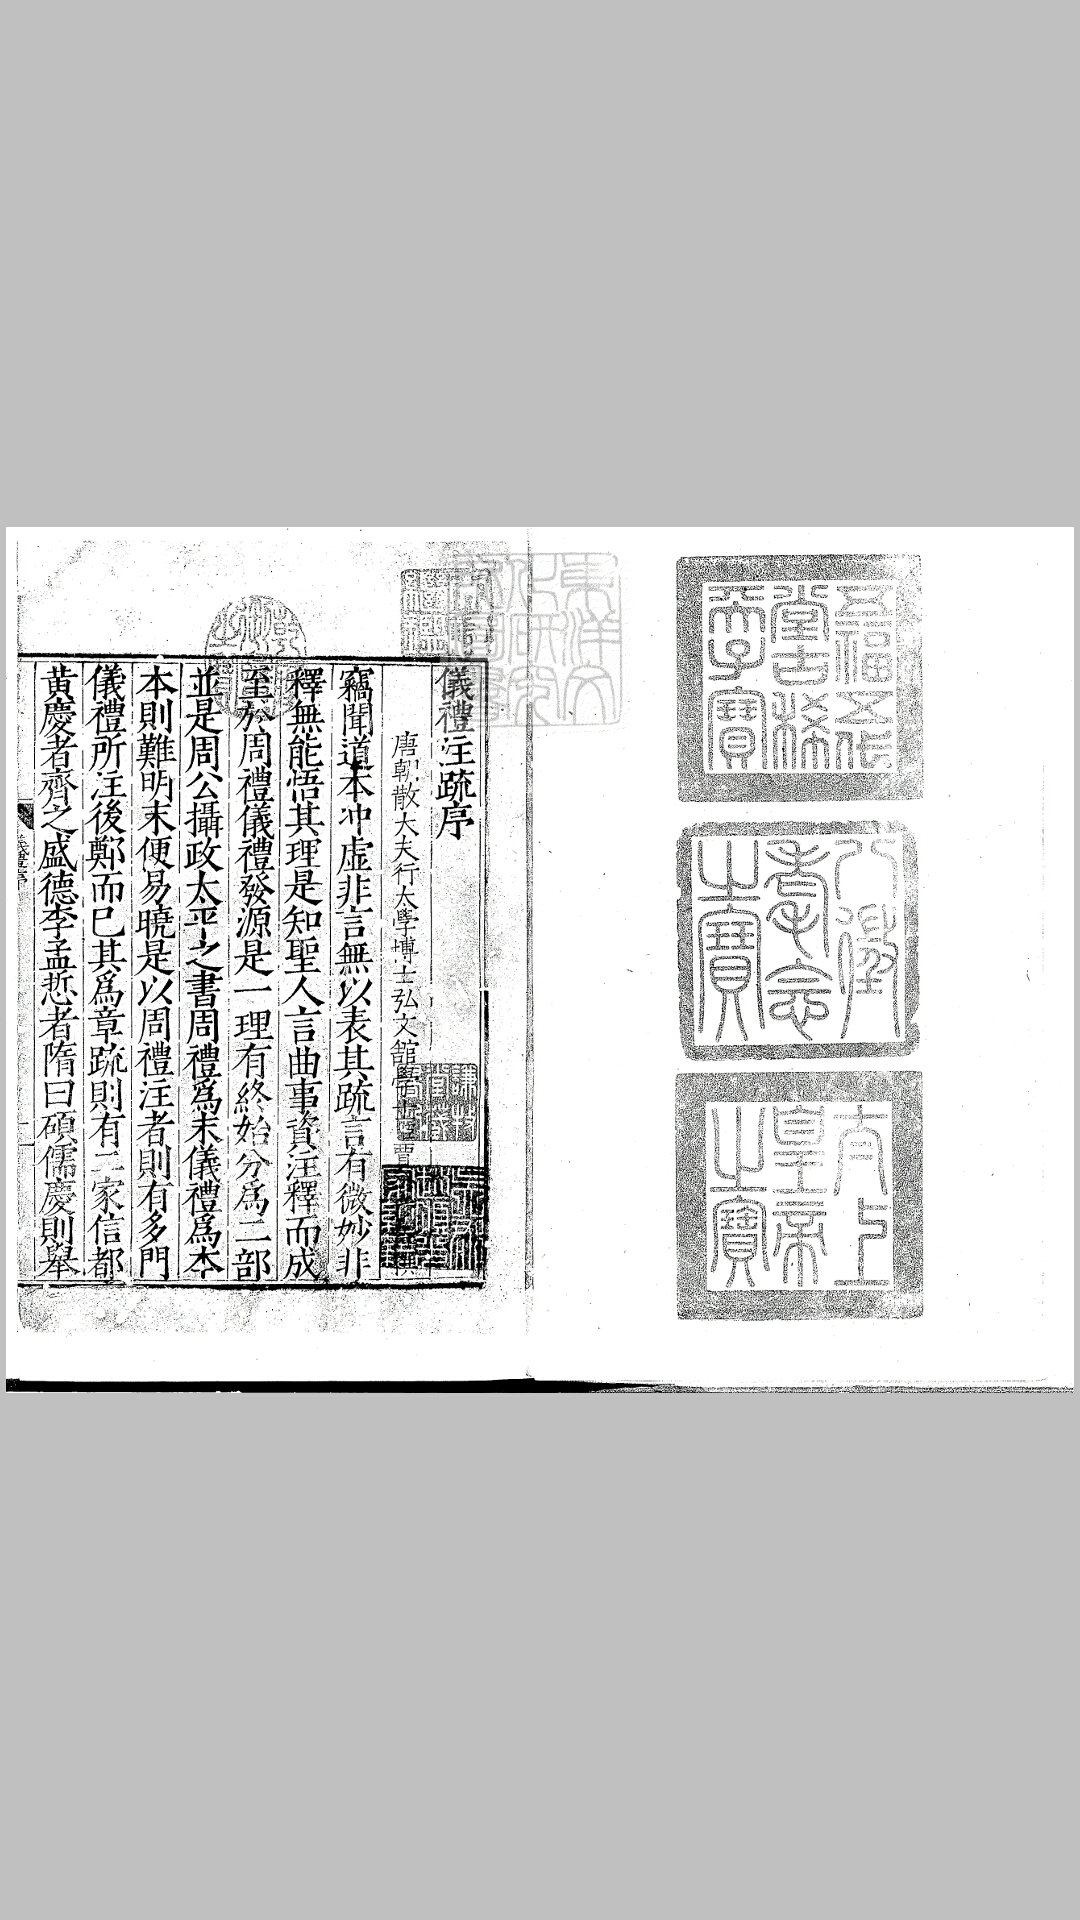 五福五代
堂古稀
天子寶
八徵
耄念
之寶
太上
皇帝
之寶
儀禮注疏序
唐朝散大夫行太學博士弘文館學士臣賈
竊聞道本冲虚非言無以表其疏言有微妙非
釋無能悟其理是知聖人言曲事資注釋而成
至於周禮儀禮發源是一理有終始分爲二部
並是周公攝政太平之書周禮爲末儀禮爲本
本則難明末便易曉是以周禮注者則有多門
儀禮所注後鄭而已其爲章疏則有二家信都
黃慶者齊之盛德李孟悊者隋曰碩儒慶則舉